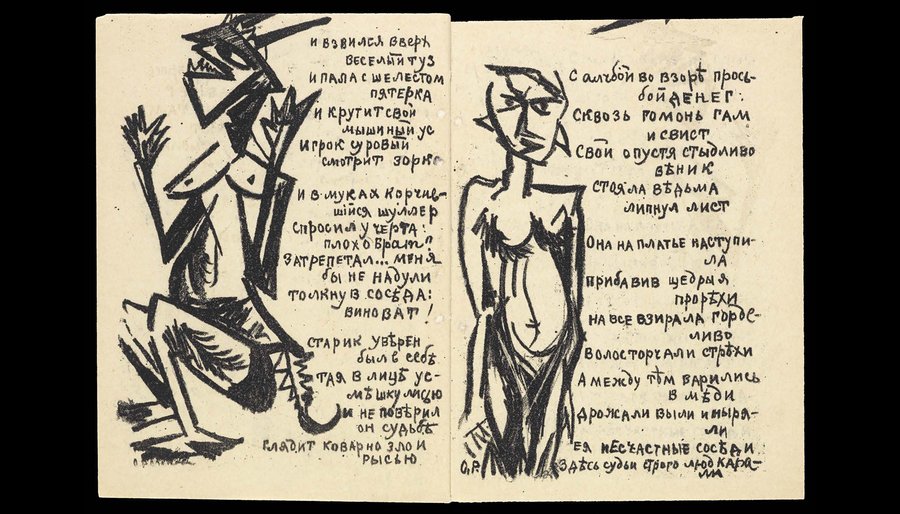 и взвился вверх
веселый туз
и пала с шелестом
пятерка
и крутит свой
мышиный ус
игрок суровый
смотрит зорко
и в муках корчив-
шійся шуллер
спросил у черта:
плохо брат?
затрепетал... меня
бы не надули
толкнув сосѣда:
виноват!
старик увѣрен
был в себѣ
тая в лицѣ ус-
мѣшку лицю
и не повѣрил
он судьбѣ
глядит коварно зло и
рысью
С алчбой во взорѣ прось-
бой денег:
Сквозь гомонь гам
и свист
Свой опустя стыдливо
вѣник
стояла вѣдьма
липнул лист
Она на платье наступи-
ла
прибавив щедрыя
прорѣхи
на все взирала горде-
ливо
волос торчали стрѣхи
А между тѣм варились
в мѣди
дрожали выли и ныря-
ли
ея несчастные сосѣди
О.Р. здѣсь судьи строго люд кара-
ли